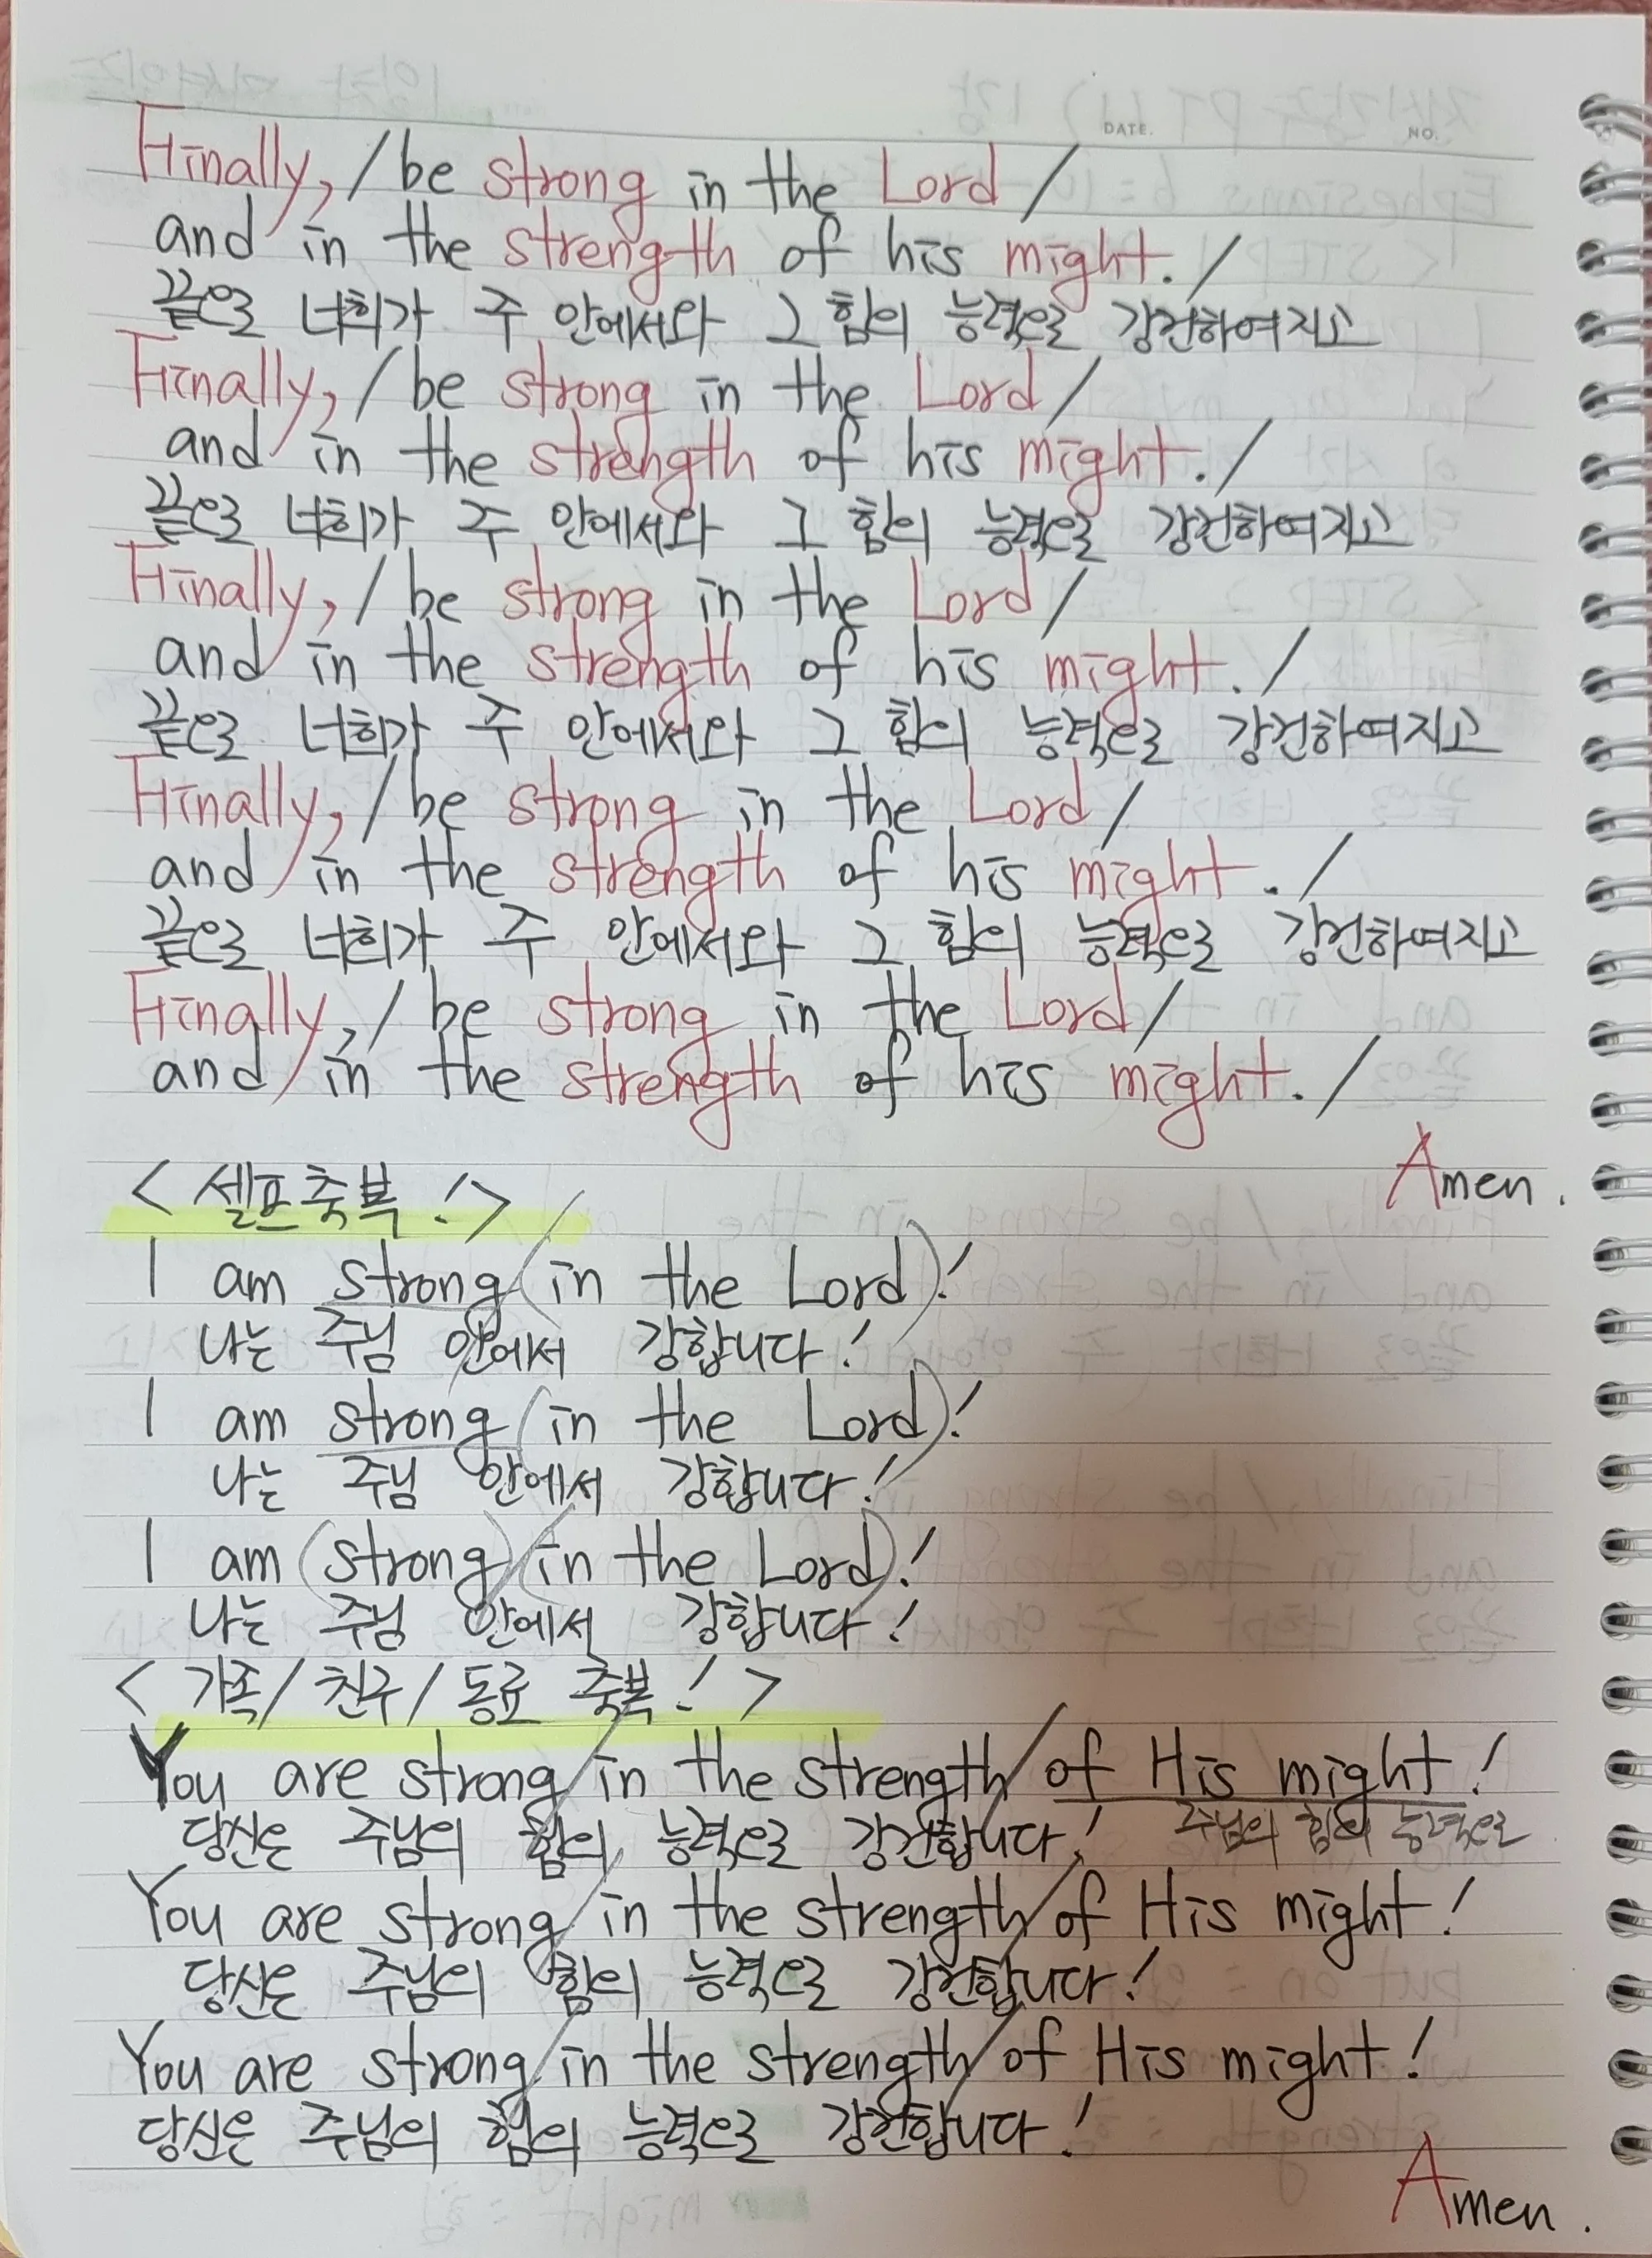 DATE. NO.
Finally, / be strong in the Lord /
and in the strength of his might. /
끝으로 너희가 주 안에서와 그 힘의 능력으로 강건하여지고
Finally, / be strong in the Lord /
and in the strength of his might. /
끝으로 너희가 주 안에서와 그 힘의 능력으로 강건하여지고
Finally, / be strong in the Lord /
and in the strength of his might. /
끝으로 너희가 주 안에서와 그 힘의 능력으로 강건하여지고
Finally, / be strong in the Lord /
and in the strength of his might. /
끝으로 너희가 주 안에서와 그 힘의 능력으로 강건하여지고
Finally, / be strong in the Lord /
and in the strength of his might. /
Amen.
< 셀프축복 ! >
I am strong (in the Lord)!
나는 주님 안에서 강합니다!
I am strong (in the Lord)!
나는 주님 안에서 강합니다!
I am (strong) (in the Lord)!
나는 주님 안에서 강합니다!
< 가족/친구/동료 축복! >
You are strong / in the strength / of His might!
당신은 주님의 힘의 능력으로 강건합니다! 주님의 힘의 능력으로
You are strong / in the strength / of His might!
당신은 주님의 힘의 능력으로 강건합니다!
You are strong / in the strength / of His might!
당신은 주님의 힘의 능력으로 강건합니다!
Amen.